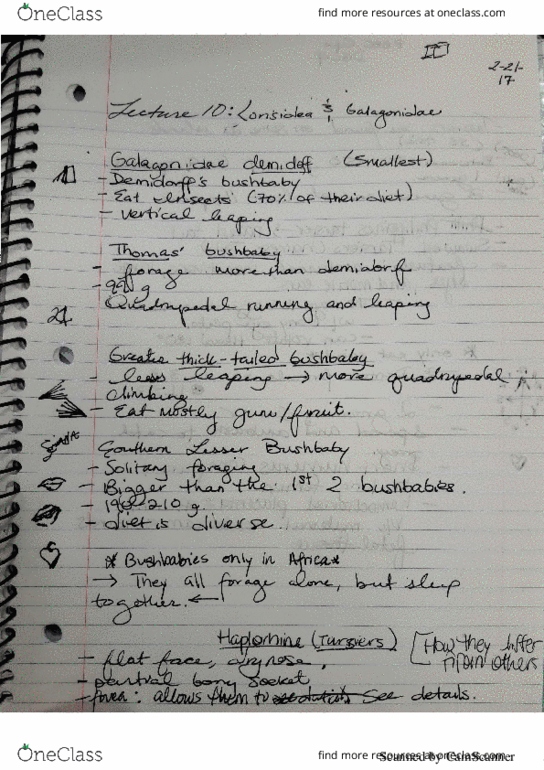 OneClass
find more resources at oneclass.com
2-21-
17
Lecture 10: Lorisidea & Galagonidae
Galagonidae demidoff (Smallest)
- Demidorff's bushbaby
- Eat insects (70% of their diet)
- vertical leaping
Thomas' bushbaby
- forage more than demidorf
- g
Quadrupedal running and leaping
Greater thick-tailed bushbaby
- less leaping → more quadrupedal
climbing
- Eat mostly gum/fruit.
Southern Lesser Bushbaby
- Solitary foraging
- Bigger than the 1st 2 bushbabies.
- 190-210 g.
- diet is diverse.
* Bushbabies only in Africa*
→ They all forage alone, but sleep
together. ←
Haplorhine (Tarsiers) [How they differ
from others
- flat face, dry nose,
- partial bony socket
- fovea: allows them to see details.
OneClass
find more resources at oneclass.com
Scanned by CamScanner